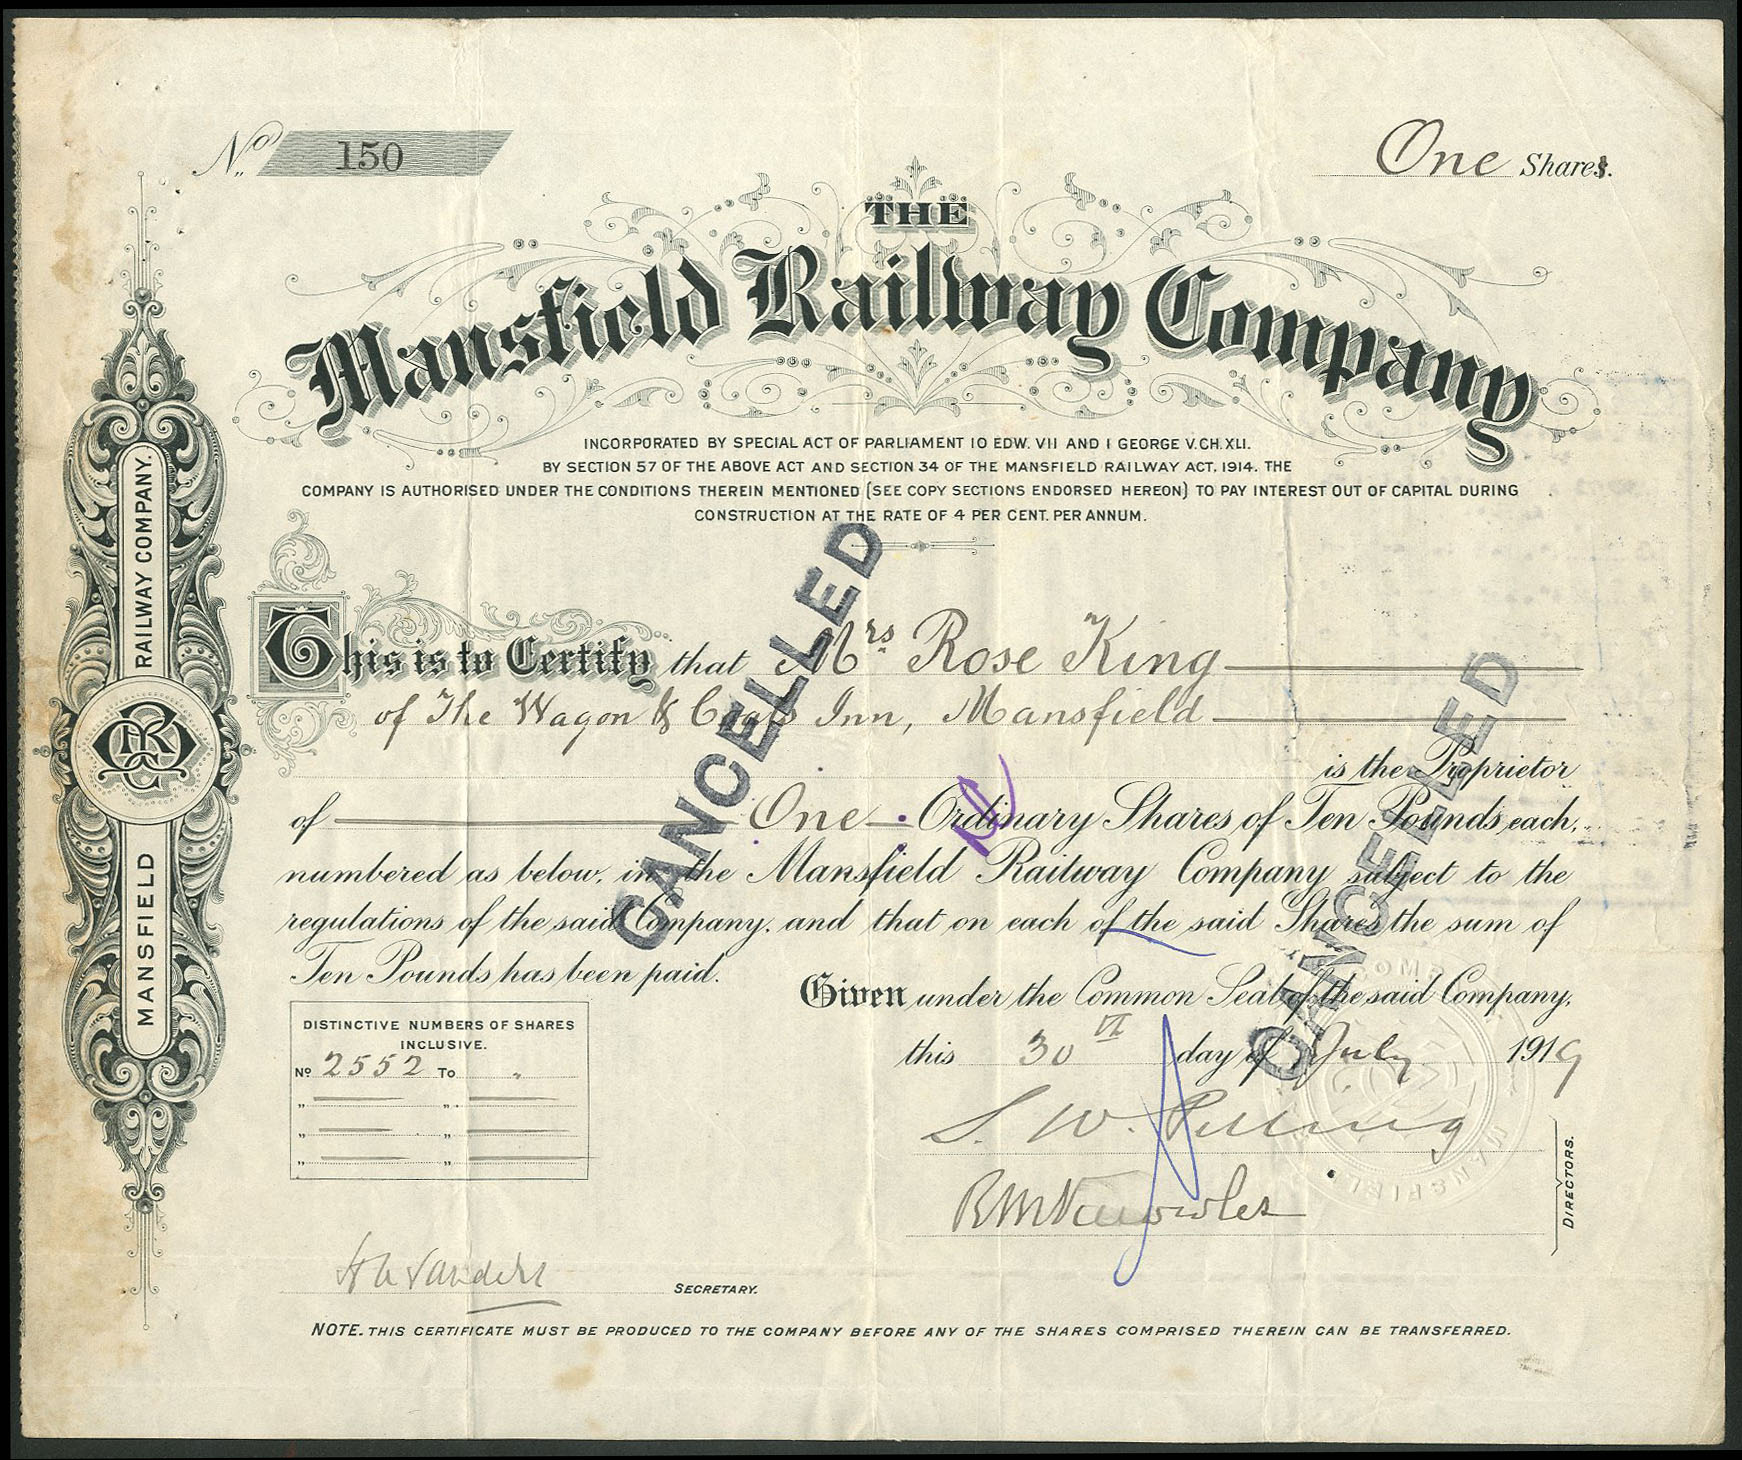 No. 150
One Shares.
THE
Mansfield Railway Company
INCORPORATED BY SPECIAL ACT OF PARLIAMENT 10 EDW. VII AND 1 GEORGE V. CH. XLI.
BY SECTION 57 OF THE ABOVE ACT AND SECTION 34 OF THE MANSFIELD RAILWAY ACT, 1914. THE
COMPANY IS AUTHORISED UNDER THE CONDITIONS THEREIN MENTIONED (SEE COPY SECTIONS ENDORSED HEREON) TO PAY INTEREST OUT OF CAPITAL DURING
CONSTRUCTION AT THE RATE OF 4 PER CENT. PER ANNUM.
MANSFIELD RAILWAY COMPANY.
This is to Certify that Mrs Rose King
of The Wagon & Coals Inn, Mansfield
is the Proprietor
of One Ordinary Shares of Ten Pounds each,
numbered as below, in the Mansfield Railway Company subject to the
regulations of the said Company, and that on each of the said Shares the sum of
Ten Pounds has been paid.
Given under the Common Seal of the said Company,
this 30th day of July 1919
CANCELLED
CANCELLED
DISTINCTIVE NUMBERS OF SHARES
INCLUSIVE.
No 2552 To "
" "
" "
" "
DIRECTORS.
SECRETARY.
NOTE. THIS CERTIFICATE MUST BE PRODUCED TO THE COMPANY BEFORE ANY OF THE SHARES COMPRISED THEREIN CAN BE TRANSFERRED.